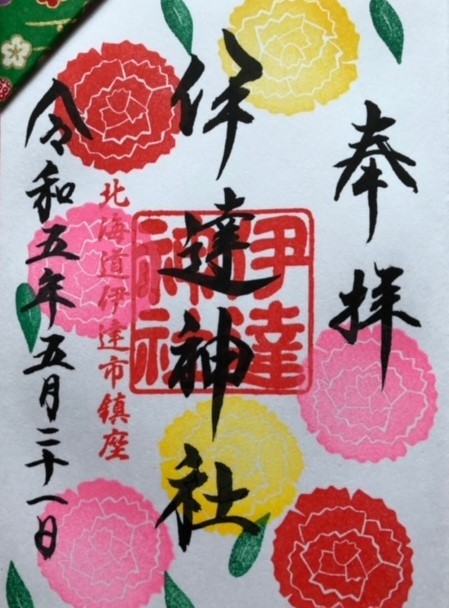 奉拝
伊達神社
伊達
神社
北海道伊達市鎮座
令和五年五月二十一日